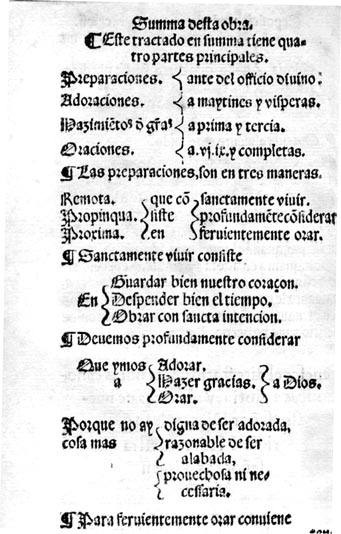 Summa desta obra.
¶ Este tractado en summa tiene qua-
tro partes principales.
Preparaciones. { ante del officio diuino:
Adoraciones. { a maytines y visperas.
Hazimiẽtos ð gr̃as { a prima y tercia.
Oraciones. { a.vj.ix.y completas.
¶ Las preparaciones, son en tres maneras.
Remota. { que cõ { sanctamente viuir.
Propinqua. { siste { profundamẽte cõsiderar
Proxima. { en { feruientemente orar.
¶ Sanctamente viuir consiste
{ Guardar bien nuestro coraçon.
En { Despender bien el tiempo.
{ Obrar con sancta intencion.
¶ Deuemos profundamente considerar
Que ymos { Adorar.
a { Hazer gracias. } a Dios.
{ Orar.
Porque no ay { digna de ser adorada,
cosa mas { razonable de ser
{ alabada,
{ prouechosa ni ne-
{ cessaria.
¶ Para feruientemente orar conuiene